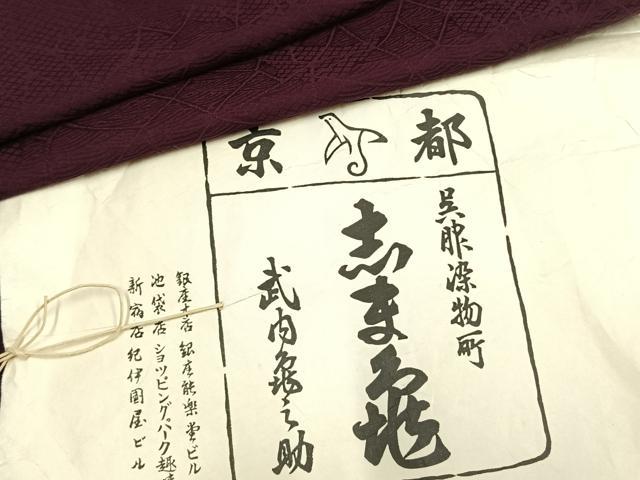 京都
呉服染物所
志ま亀
武内亀之助
銀座店 銀座能楽堂ビル
池袋店 ショッピング・パーク趣味
新宿店 紀伊國屋ビル